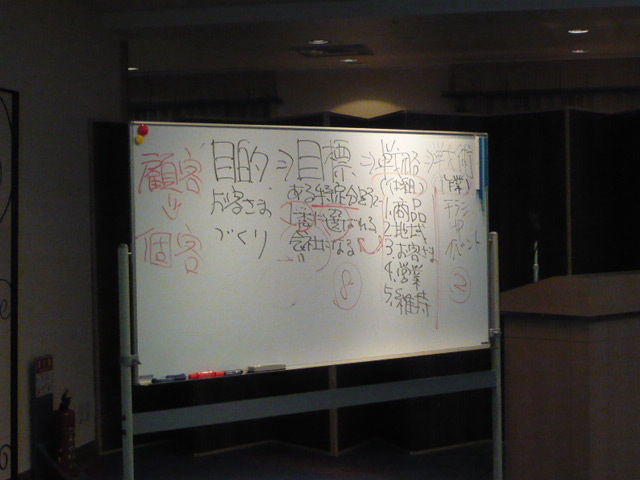 顧客
⇓
個客
目的 ⇒ 目標 ⇒ 戦略 ⇒ 戦術
お客さま
づくり
ある特定分野で
1番に選ばれる
会社になる
8
1.商品
2.地域
3.お客さま
4.営業
5.維持
チラシ
イベント
2